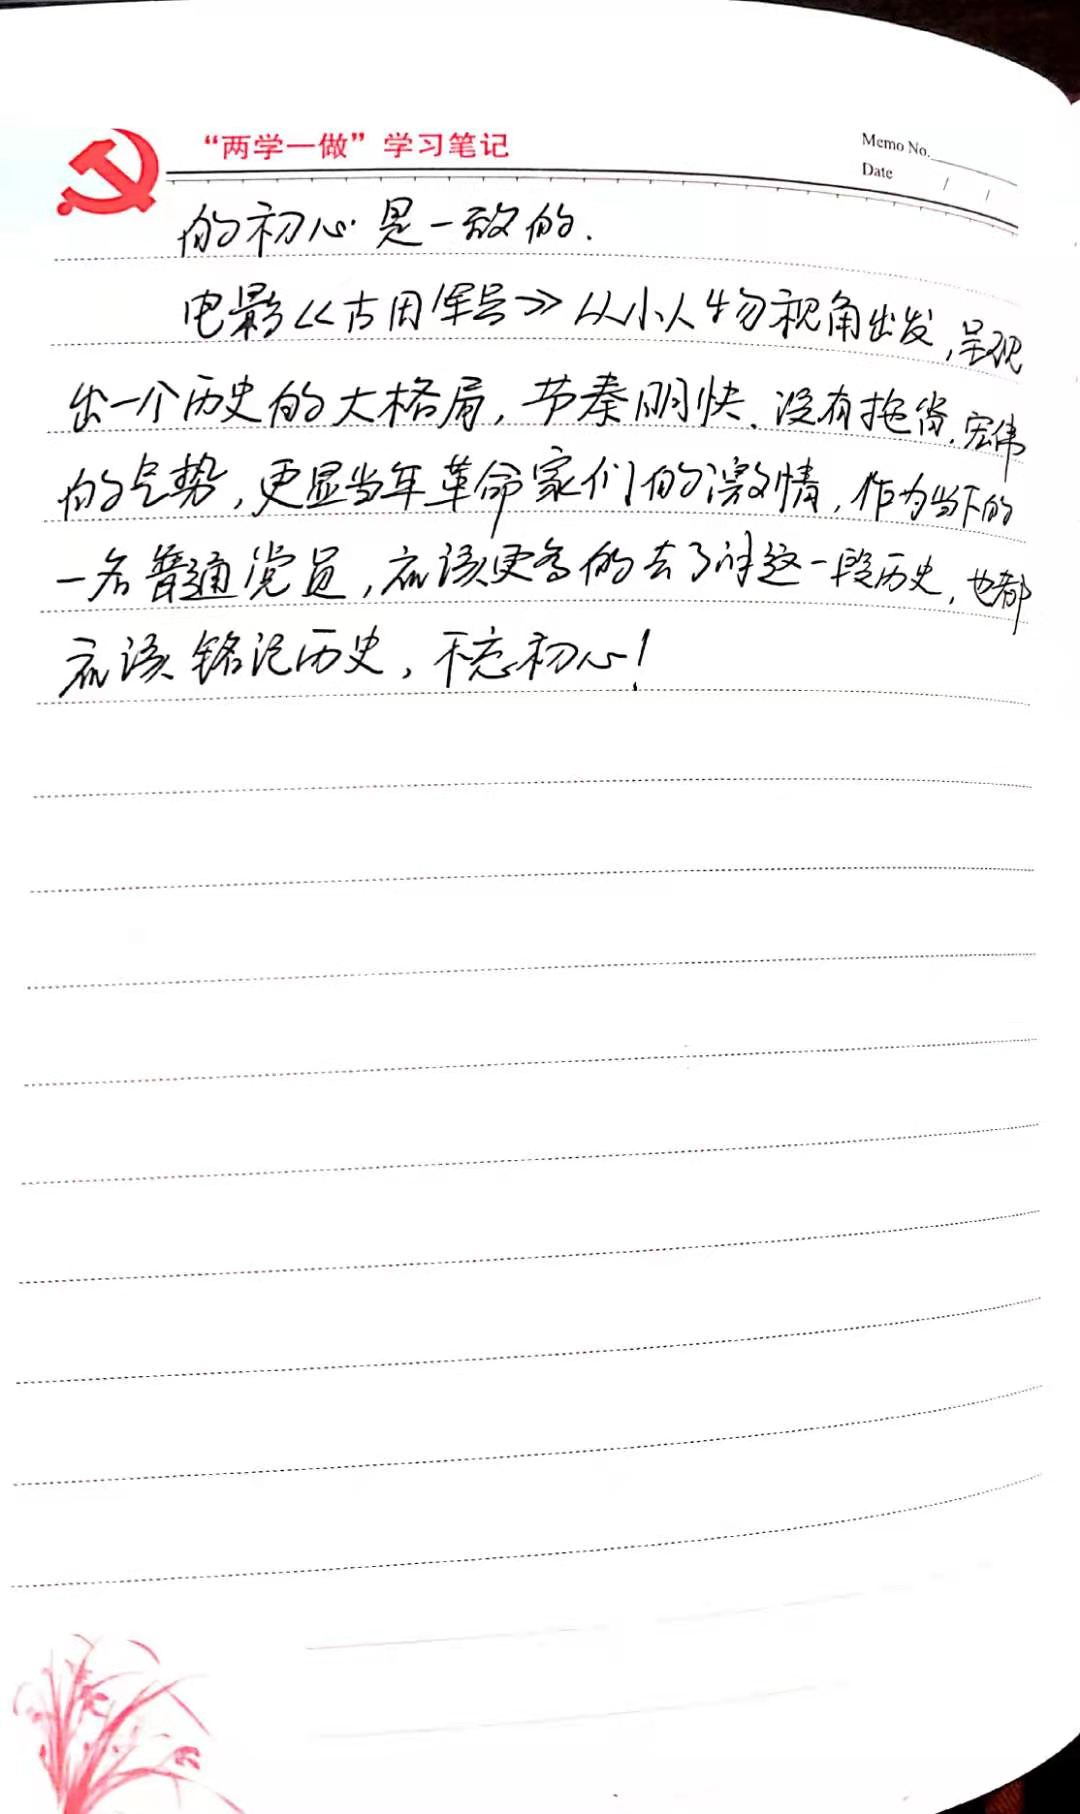 “两学一做”学习笔记
Memo No.
Date / /
的初心是一致的.
电影《古田军号》从小人物视角出发,呈现
出一个历史的大格局,节奏明快、没有拖沓,宏伟
的气势,更显当年革命家们的激情,作为当下的
一名普通党员,应该更多的去了解这一段历史,也都
应该铭记历史,不忘初心!